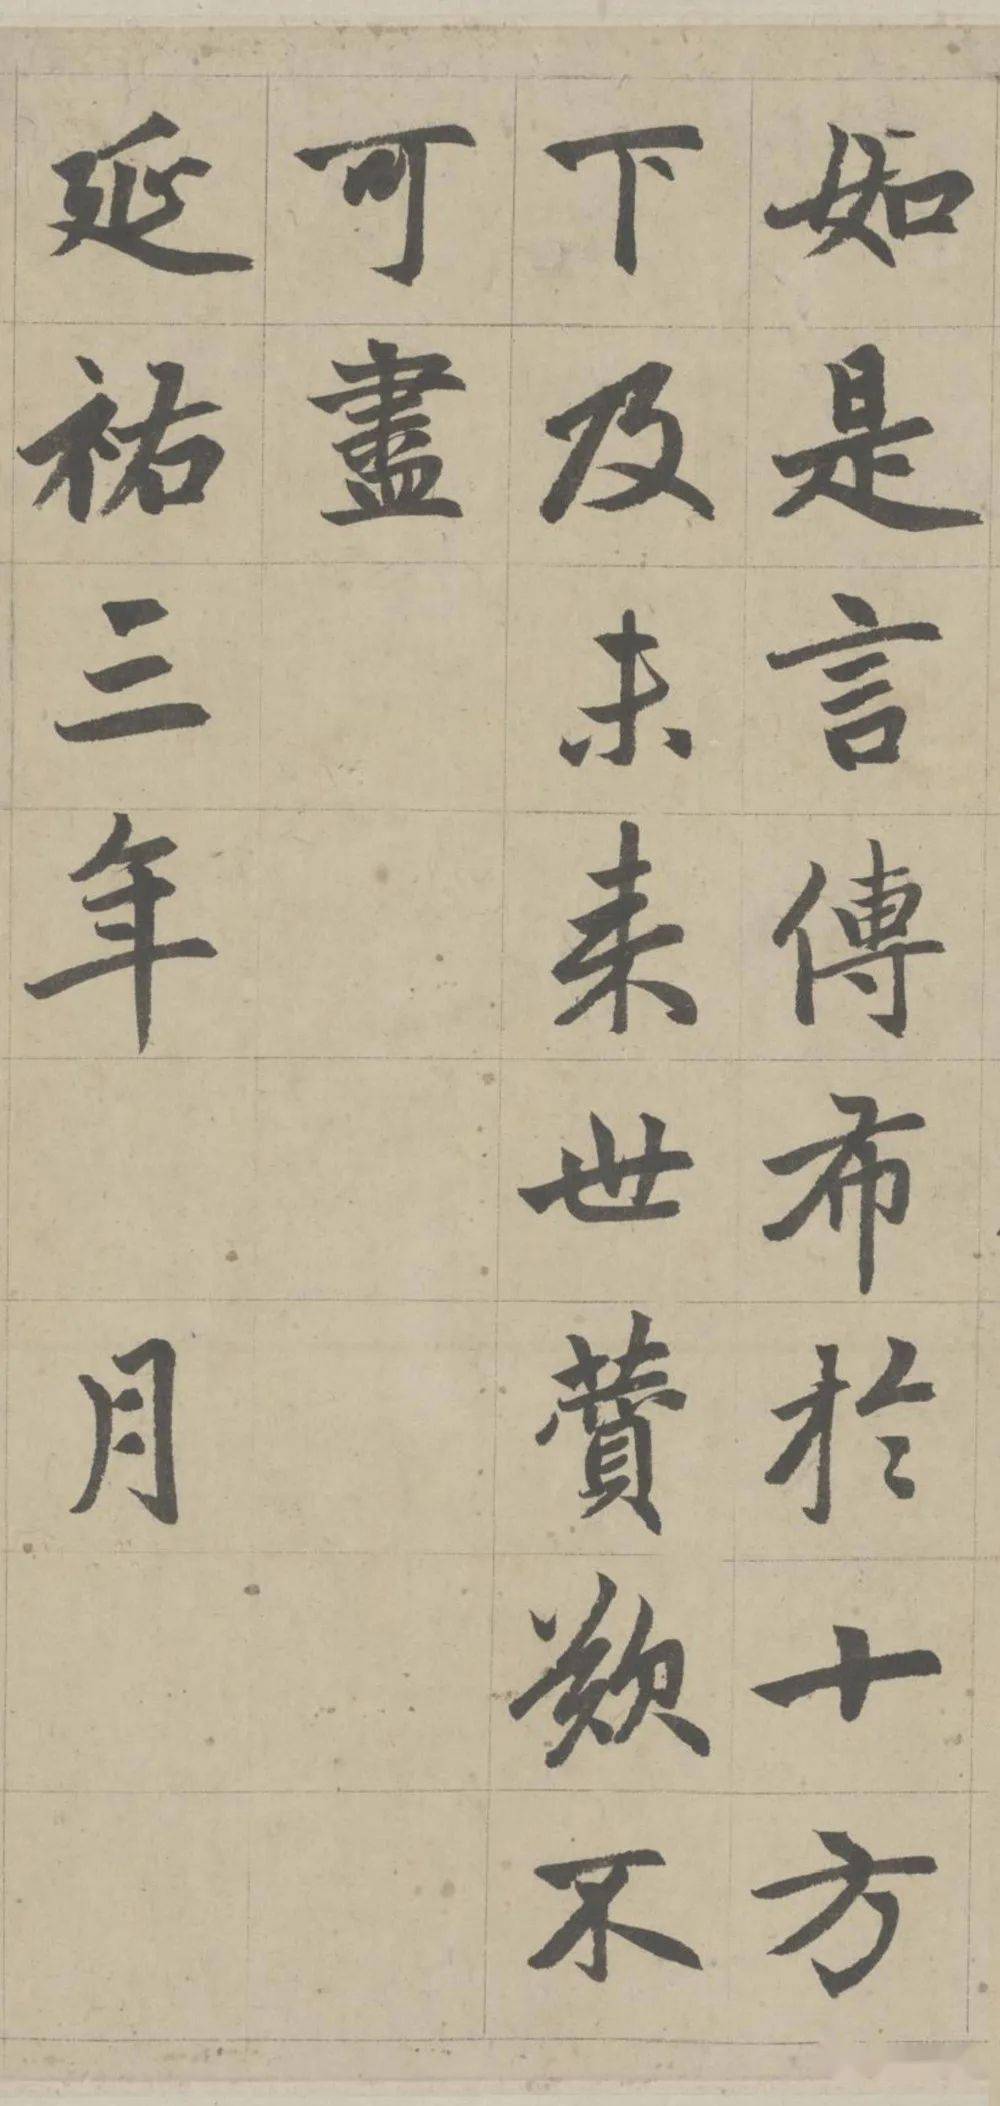 如是言傳布於十方
下及未来世賛歎不
可盡
延祐三年 月